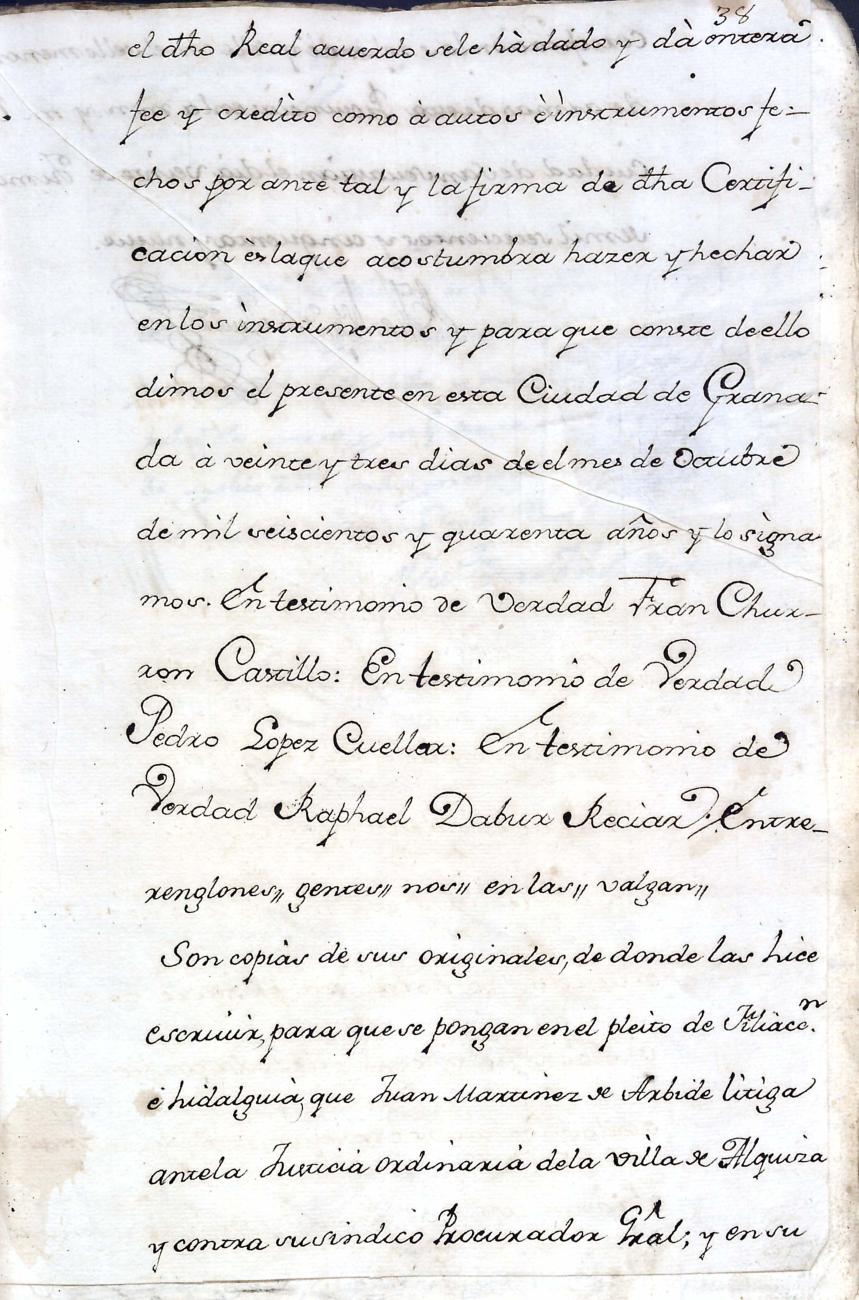 38
el dho Real acuerdo sele hà dado y dà entera
fee y credito como à autos è instrumentos fe-
chos por ante tal y la firma de dha Certifi-
cacion es laque acostumbra hazer y hechar
en los instrumentos y para que conste de ello
dimos el presente en esta Ciudad de Grana-
da à veinte y tres dias de el mes de Octubre
de mil seiscientos y quarenta años y lo signa
mos. En testimonio de Verdad Fran Chur-
ron Castillo: En testimonio de Verdad
Pedro Lopez Cuellar: En testimonio de
Verdad Raphael Dabur Reciar / Entre-
renglones,, gentes,, nos,, en las,, valgan,,
Son copias de sus originales, de donde las hice
escriuir, para que se pongan en el pleito de Filiacon.
é hidalguia, que Juan Martinez de Arbide litiga
ante la Justicia ordinaria dela villa de Alquiza
y contra su sindico Procurador Gral; y en su